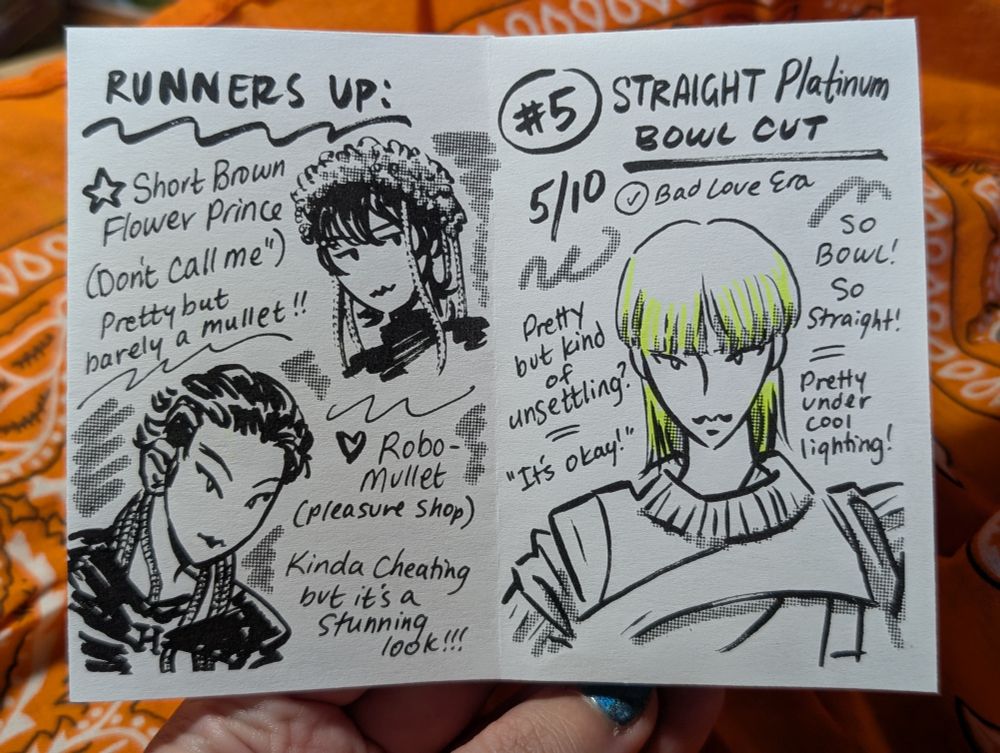 RUNNERS UP:
☆ Short Brown
Flower Prince
(Don't Call me")
Pretty but
barely a mullet!!
♡ Robo-
Mullet
(pleasure shop)
Kinda Cheating
but it's a
stunning
look!!!
#5 STRAIGHT Platinum
BOWL CUT
5/10 ✓ Bad Love Era
Pretty
but kind
of
unsettling?
=
"It's okay!"
So
BOWL!
So
Straight!
=
Pretty
under
cool
lighting!